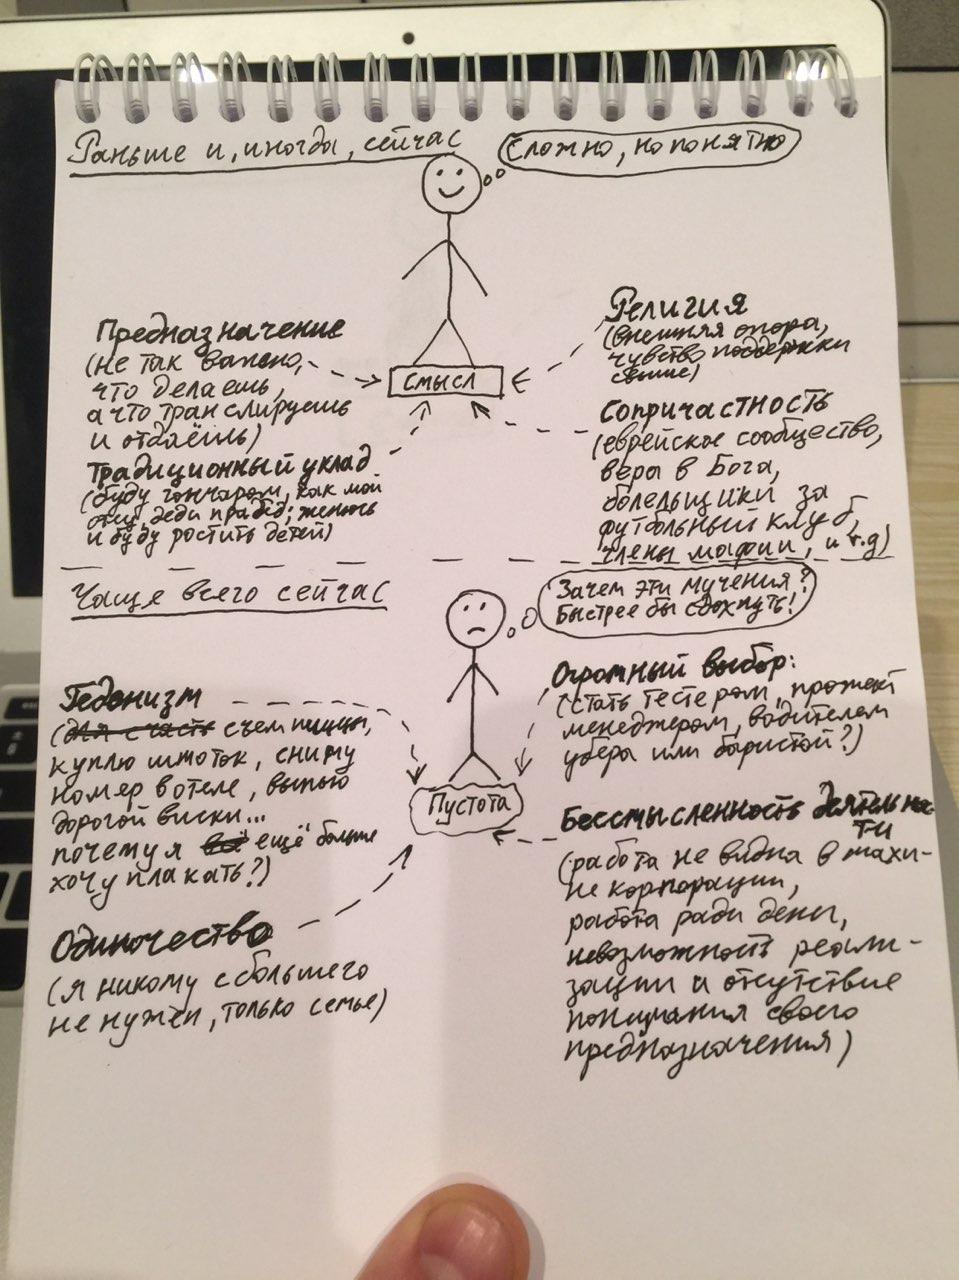 Раньше и, иногда, сейчас
Сложно, но понятно
Предназначение
(не так важно,
что делаешь,
а что транслируешь
и отдаёшь)
Традиционный уклад
(буду гончаром, как мой
отец, деди прадед; женюсь
и буду ростить детей)
смысл
Религия
(внешняя опора,
чувство поддержки
свыше)
Сопричастность
(еврейское сообщество,
вера в Бога,
болельщики за
футбольный клуб,
члены мафии, и т.д)
Чаще всего сейчас
Зачем эти мучения?
Быстрее бы сдохнуть!
Гедонизм
(для счасть съем пиццы,
куплю шмоток, сниму
номер в отеле, выпью
дорогой виски...
почему я всё ещё больше
хочу плакать?)
Одиночество
(я никому с большего
не нужен, только семье)
Пустота
Огромный выбор:
(стать тестером, прожект
менеджером, водителем
убера или баристой?)
Бессмысленность деятельнос-
ти
(работа не видна в махи-
не корпорации,
работа ради денег,
невозможность реали-
зации и отсутствие
понимания своего
предназначения)